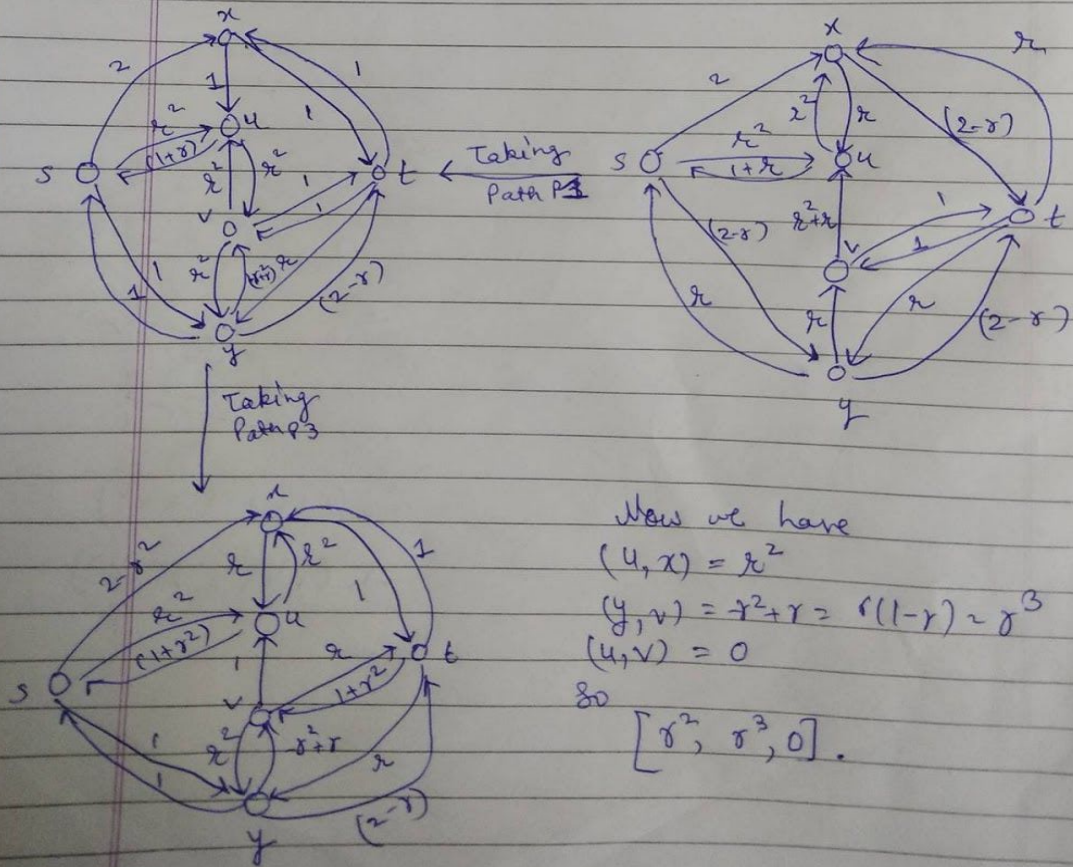 x
2
1
1
1
r²
u
(1+r)
s
r²
r²
1
t
1
v
r²
(-r²+r)
r
1
1
(2-r)
y
Taking
Path P1
x
r
2
r²
r
(2-r)
r²
s
1+r
u
(2-r)
r²+r
1
t
v
1
r
r
r
(2-r)
y
Taking
Path P3
x
2-r²
r
r²
1
1
r²
u
(1+r²)
1
r
t
s
v
1+r²
1
r²
-r²+r
r
1
(2-r)
y
Now we have
(u, x) = r²
(y, v) = -r²+r = r(1-r) = r³
(u, v) = 0
So
[r², r³, 0].